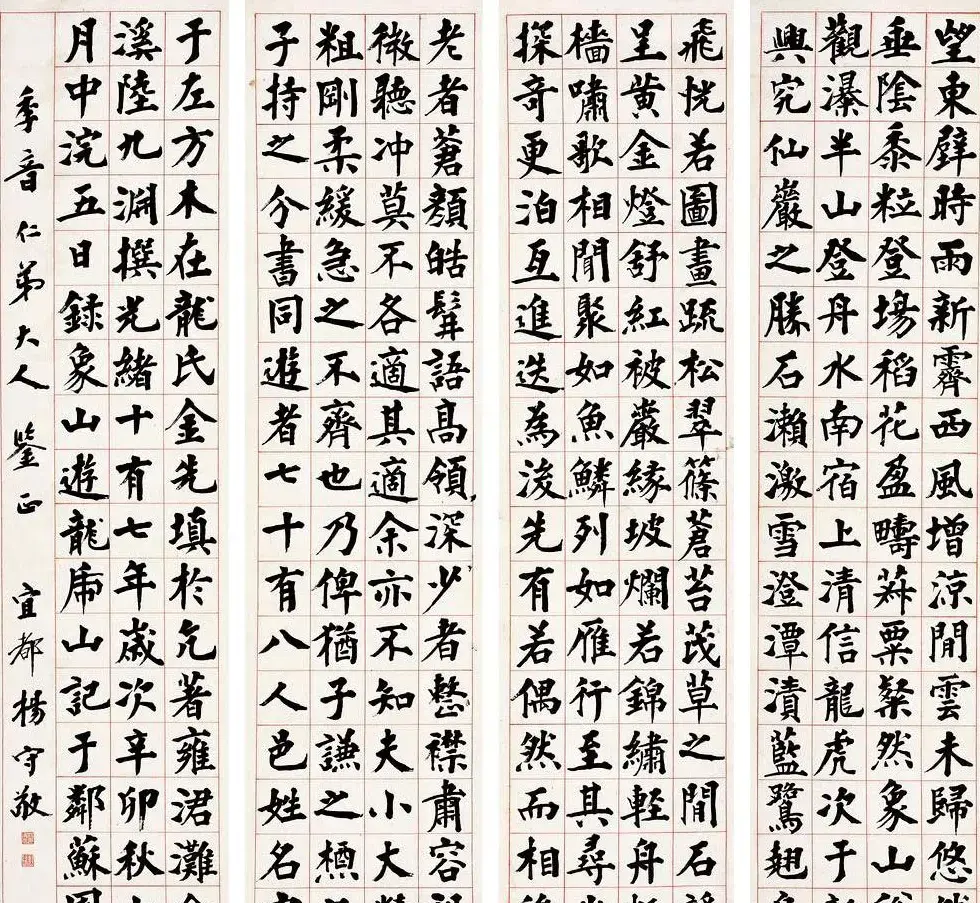 望東壁時雨新霽西風增涼閒雲未歸悠
垂陰黍粒登場稻花盈疇蔴粟粲然象山
觀瀑半山登丹水南宿上清信龍虎次于
興究仙巖之勝石瀨激雪澄潭漬藍鷺翹
飛恍若圖畫疏松翠篠蒼苔茂草之間石
呈黄金燈舒紅被巖緣坡爛若錦繡輕舟
檣嘯歌相聞聚如魚鱗列如雁行至其尋
探奇更泊互進迭為後先有若偶然而相
老者蒼顏皓髯語高領深少者整襟肅容
微聽冲莫不各適其適余亦不知夫小大
粗剛柔緩急之不齊也乃俾猶子謙之槱
子持之分書同遊者七十有八人邑姓名
于左方木在龍氏金先填於亢著雍涒灘
溪陸九淵撰光緒十有七年歲次辛卯秋
月中浣五日録象山遊龍虎山記于鄰蘇
季音仁弟大人鑒正 宜都楊守敬